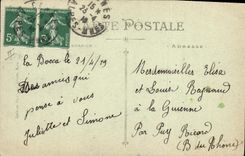 TE POSTALE
ADRESSE
La Bocca le 21/4/19
Des amies qui
pense à vous
Juliette et Simone
Mesdemoiselles Elisa
et Louise Raynaud
à la Guienne
Par Puy Ricard
(B du Rhône)